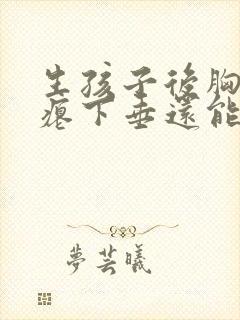 生孩子後胸
瘪下垂還能
夢芸曦